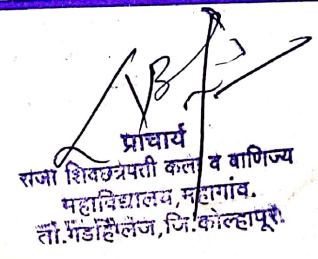 प्राचार्य
राजा शिवछत्रपती कला व वाणिज्य
महाविद्यालय,महागांव.
ता.गडहिंग्लज,जि.कोल्हापूर.